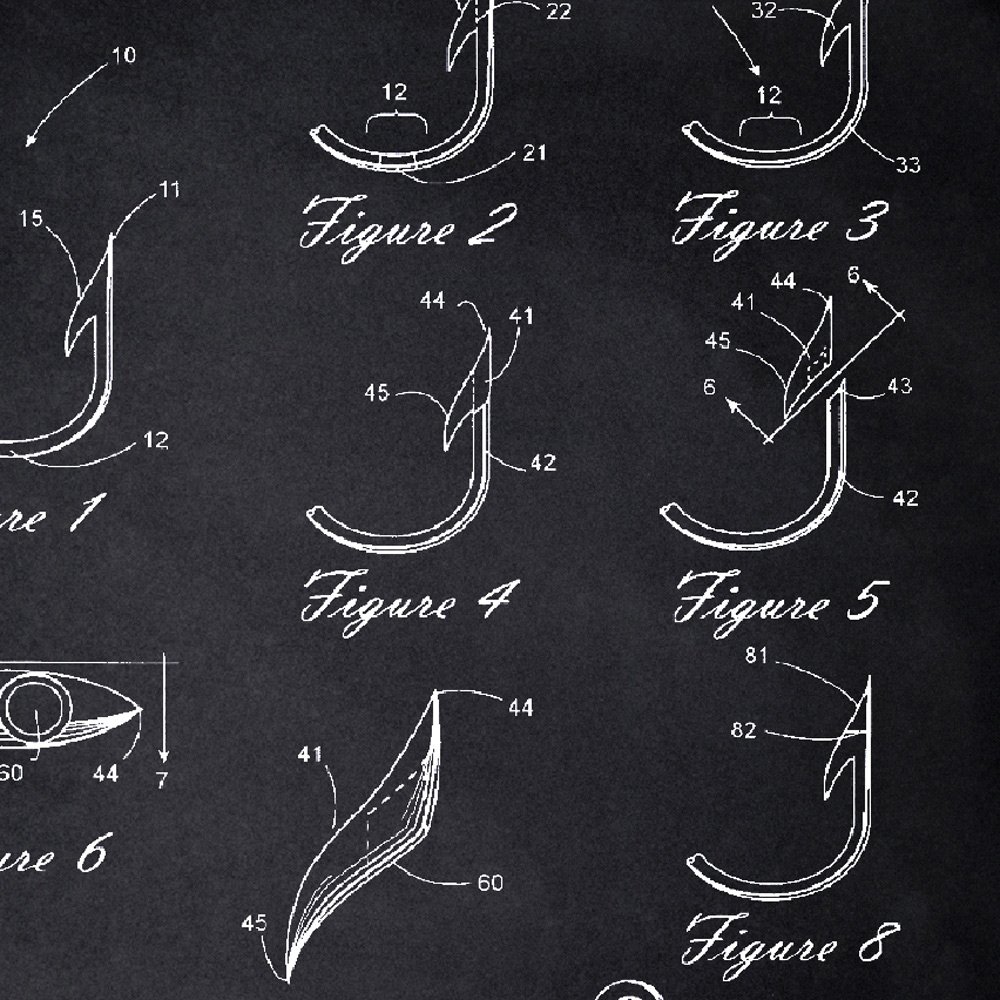 22
32
10
12
12
21
33
11
15
Figure 2
Figure 3
6
44
44
41
41
45
45
6
43
12
42
42
re 1
Figure 4
Figure 5
81
44
82
41
60
44
7
ure 6
60
45
Figure 8